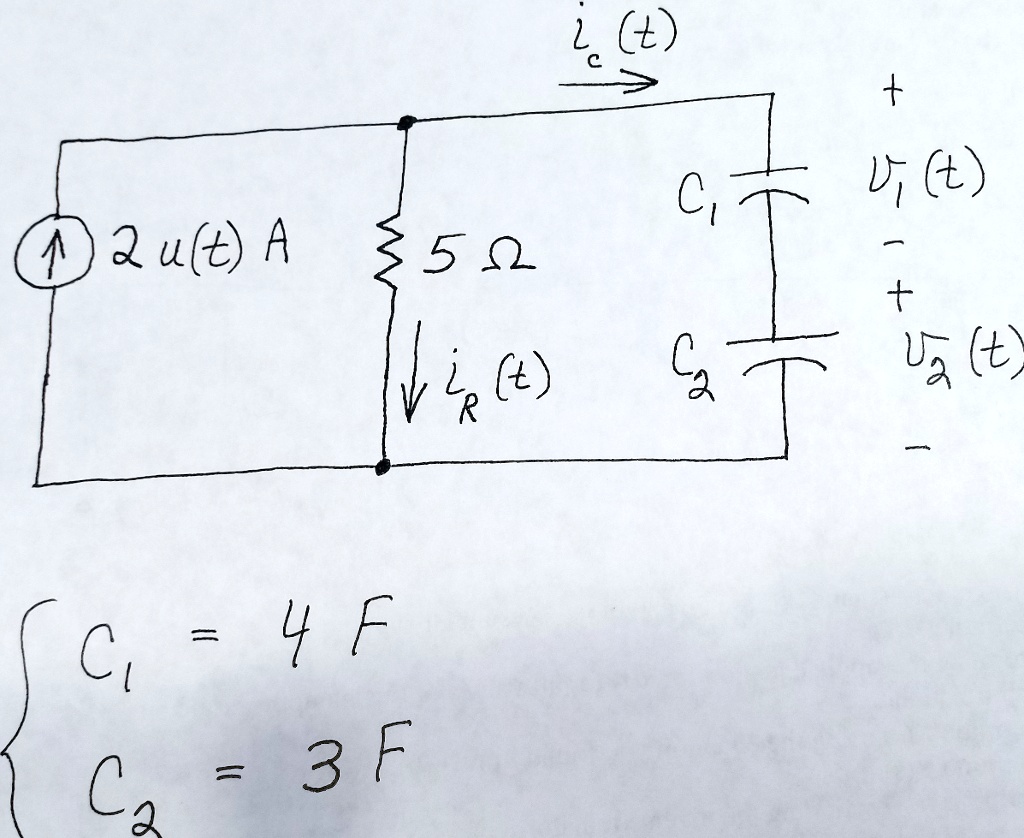 i_c (t)
+
C_1 v_1 (t)
2 u(t) A 5 Ω
-
+
i_R (t) C_2 v_2 (t)
-
C_1 = 4 F
C_2 = 3 F